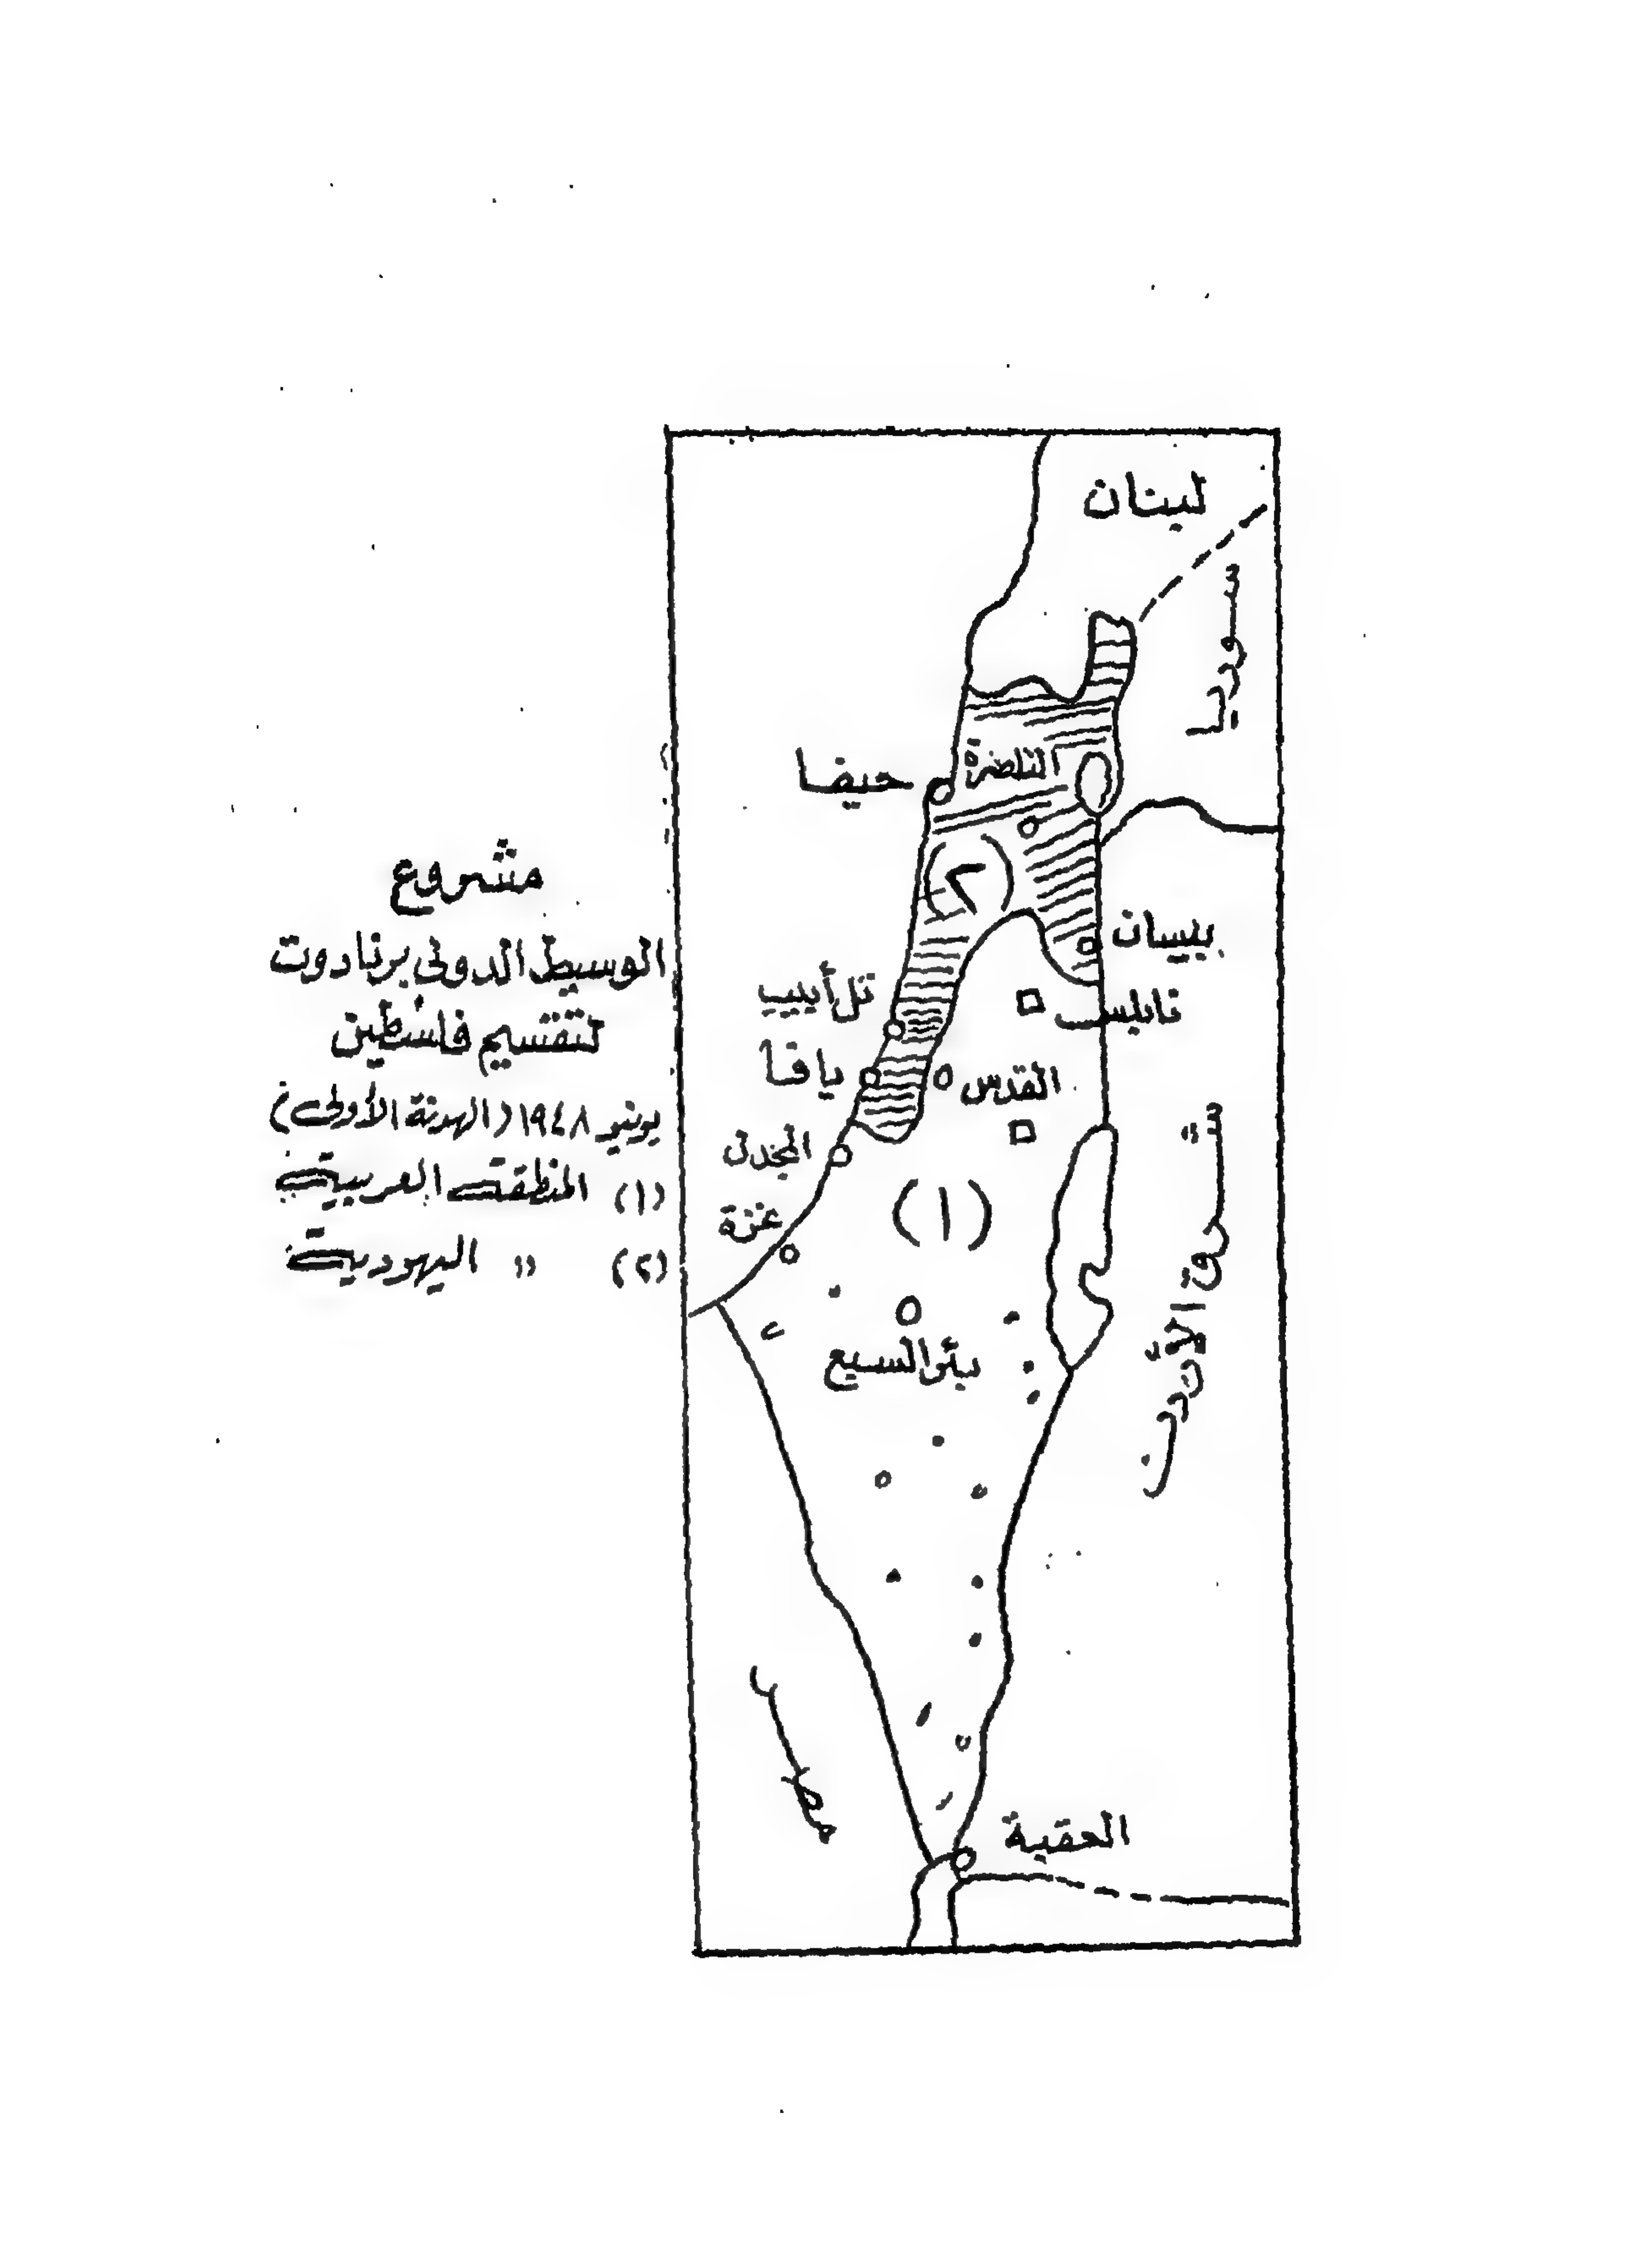 مشروع
الوسيط الدولى برنادوت
لتقسيم فلسطين
يونيو ١٩٤٨ (الهدنة الأولى)
(١) المنطقة العربية
(٢) " اليهودية
لبنان
سوريا
الناصرة
حيفا
(٢)
بيسان
تل أبيب
نابلس
يافا
القدس
المجدل
شرق الأردن
(١)
غزة
بئر السبع
مصر
العقبة